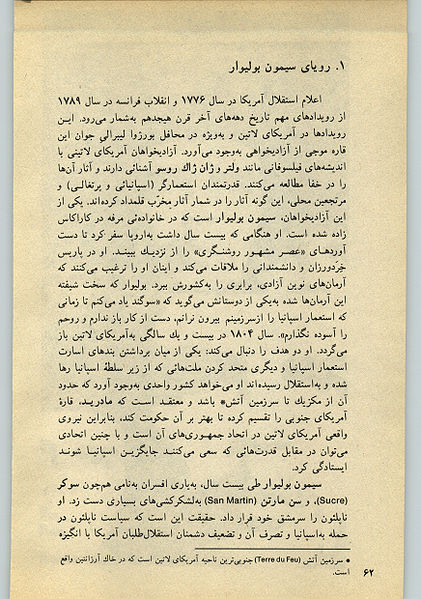 ۱. رویای سیمون بولیوار
اعلام استقلال آمریکا در سال ۱۷۷۶ و انقلاب فرانسه در سال ۱۷۸۹
از رویدادهای مهم تاریخ دهه‌های آخر قرن هیجدهم به‌شمار می‌رود. ایـن
رویدادها در آمریکای لاتین و به‌ویژه در محافل بورژوا لیبرالی جوان این
قاره موجی از آزادیخواهی به‌وجود می‌آورد. آزادیخواهان آمریکای لاتینی با
اندیشه‌های فیلسوفانی مانند ولتر و ژان ژاك روسو آشنائی دارند و آثار آن‌ها
را در خفا مطالعه می‌کنند. قدرتمندان استعمارگر (اسپانیائی و پرتغالـی) و
مرتجعین محلی، این گونه آثار را در شمار آثار مخرّب قلمداد کرده‌اند. یکی از
این آزادیخواهان، سیمون بولیوار است که در خانواده‌ئی مرفه در کاراکاس
زاده شده است. او هنگامی که بیست سال داشت به‌اروپا سفر کرد تا دست
آوردهـای «عصـر مشهـور روشنـگری» را از نزدیـك ببینـد. او در پاریس
خِرَدورزان و دانشمندانی را ملاقات می‌کند و اینان او را ترغیب می‌کنند که
آرمان‌های نوین آزادی، برابری را به‌کشورش ببرد. بولیوار که سخت شیفته
این آرمان‌ها شده به‌یکی از دوستانش می‌گوید که «سوگند یاد می‌کنم تا زمانی
که استعمار اسپانیا را ازسرزمینم بیرون نرانم، دست از کار باز ندارم و روحم
را آسوده نگذارم». سال ۱۸۰۴ در بیست و یك سالگی به‌آمریکای لاتین باز
می‌گردد. او دو هدف را دنبال می‌کند: یکی از میان برداشتن بندهای اسارت
استعمار اسپانیا و دیگری متحد کردن ملت‌هائی که از زیر سلطهٔ اسپانیا رها
شده و به‌استقلال رسیده‌اند او می‌خواهد کشور واحدی به‌وجود آورد که حدود
آن از مکزیك تا سرزمین آتش* باشد و معتقـد است که مادریـد، قارهٔ
آمریکای جنوبی را تقسیم کرده تا بهتر بر آن حکومت کند، بنابراین نیروی
واقعی آمریکای لاتین در اتحاد جمهـوری‌های آن است و با چنین اتحادی
می‌توان در مقابل قدرت‌هائی که سعی می‌کننـد جایگزیـن اسپانیـا شونـد
ایستادگی کرد.
سیمون بولیوار طی بیست سال، به‌یاری افسران به‌نامی همچون سوکر
(Sucre)، و سن مارتن (San Martin) به‌لشکرکشی‌های بسیاری دست زد. او
ناپلئون را سرمشق خود قرار داد. حقیقت این است که سیاست ناپلئون در
حمله به‌اسپانیا و تصرف آن و تضعیف دشمنان استقلال‌طلبان آمریکا با انگیزه
* سرزمین آتش (Terre du Feu) جنوبی‌ترین ناحیه آمریکای لاتین است که در خاك آرژانتین واقع
است.
۶۲